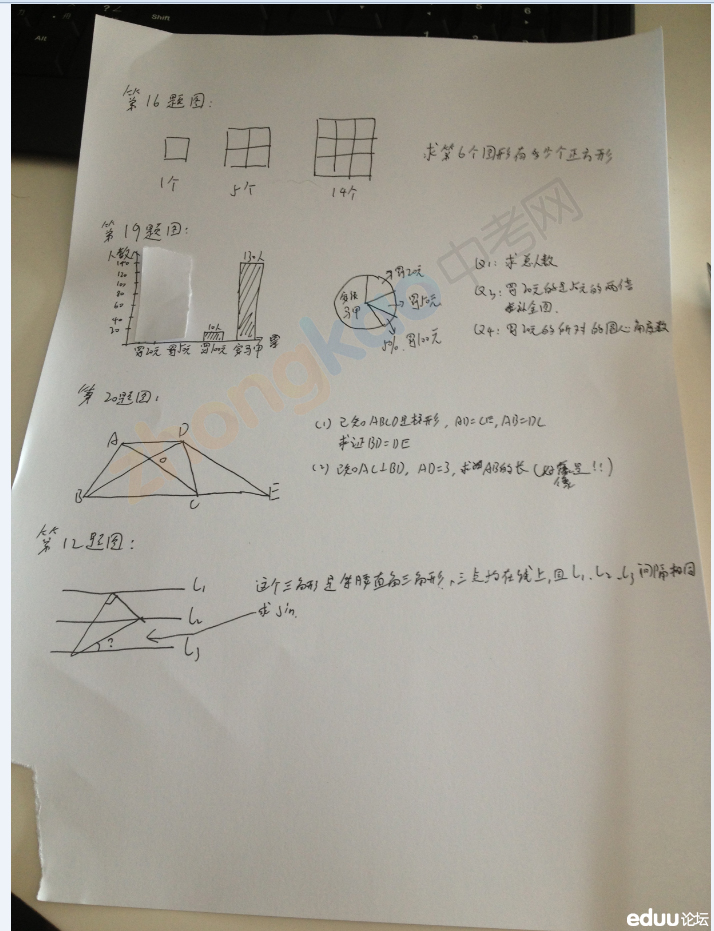 第16题图:
1个
5个
14个
求第6个图形有多少个正方形
第19题图:
人数
140
120
100
80
60
40
20
10人
130人
捐20元 捐50元 捐100元
票
捐20元
捐50元
5% 捐100元
Q1: 求总人数
Q3: 捐20元的是50元的两倍
Q4: 捐20元的所对的圆心角度数
第20题图:
A
D
O
B
C
E
(1) 已知ABCD是梯形, AD=CE, AB=DC
求证BD=DE
(2) 已知AC⊥BD, AD=3, 求AB的长
第12题图:
L1
L2
?
L3
这个三角形是等腰直角三角形, 三点均在线上, 且L1、L2、L3间隔相同
求sin
zhongkao中考网
eduu论坛
Alt
Shift